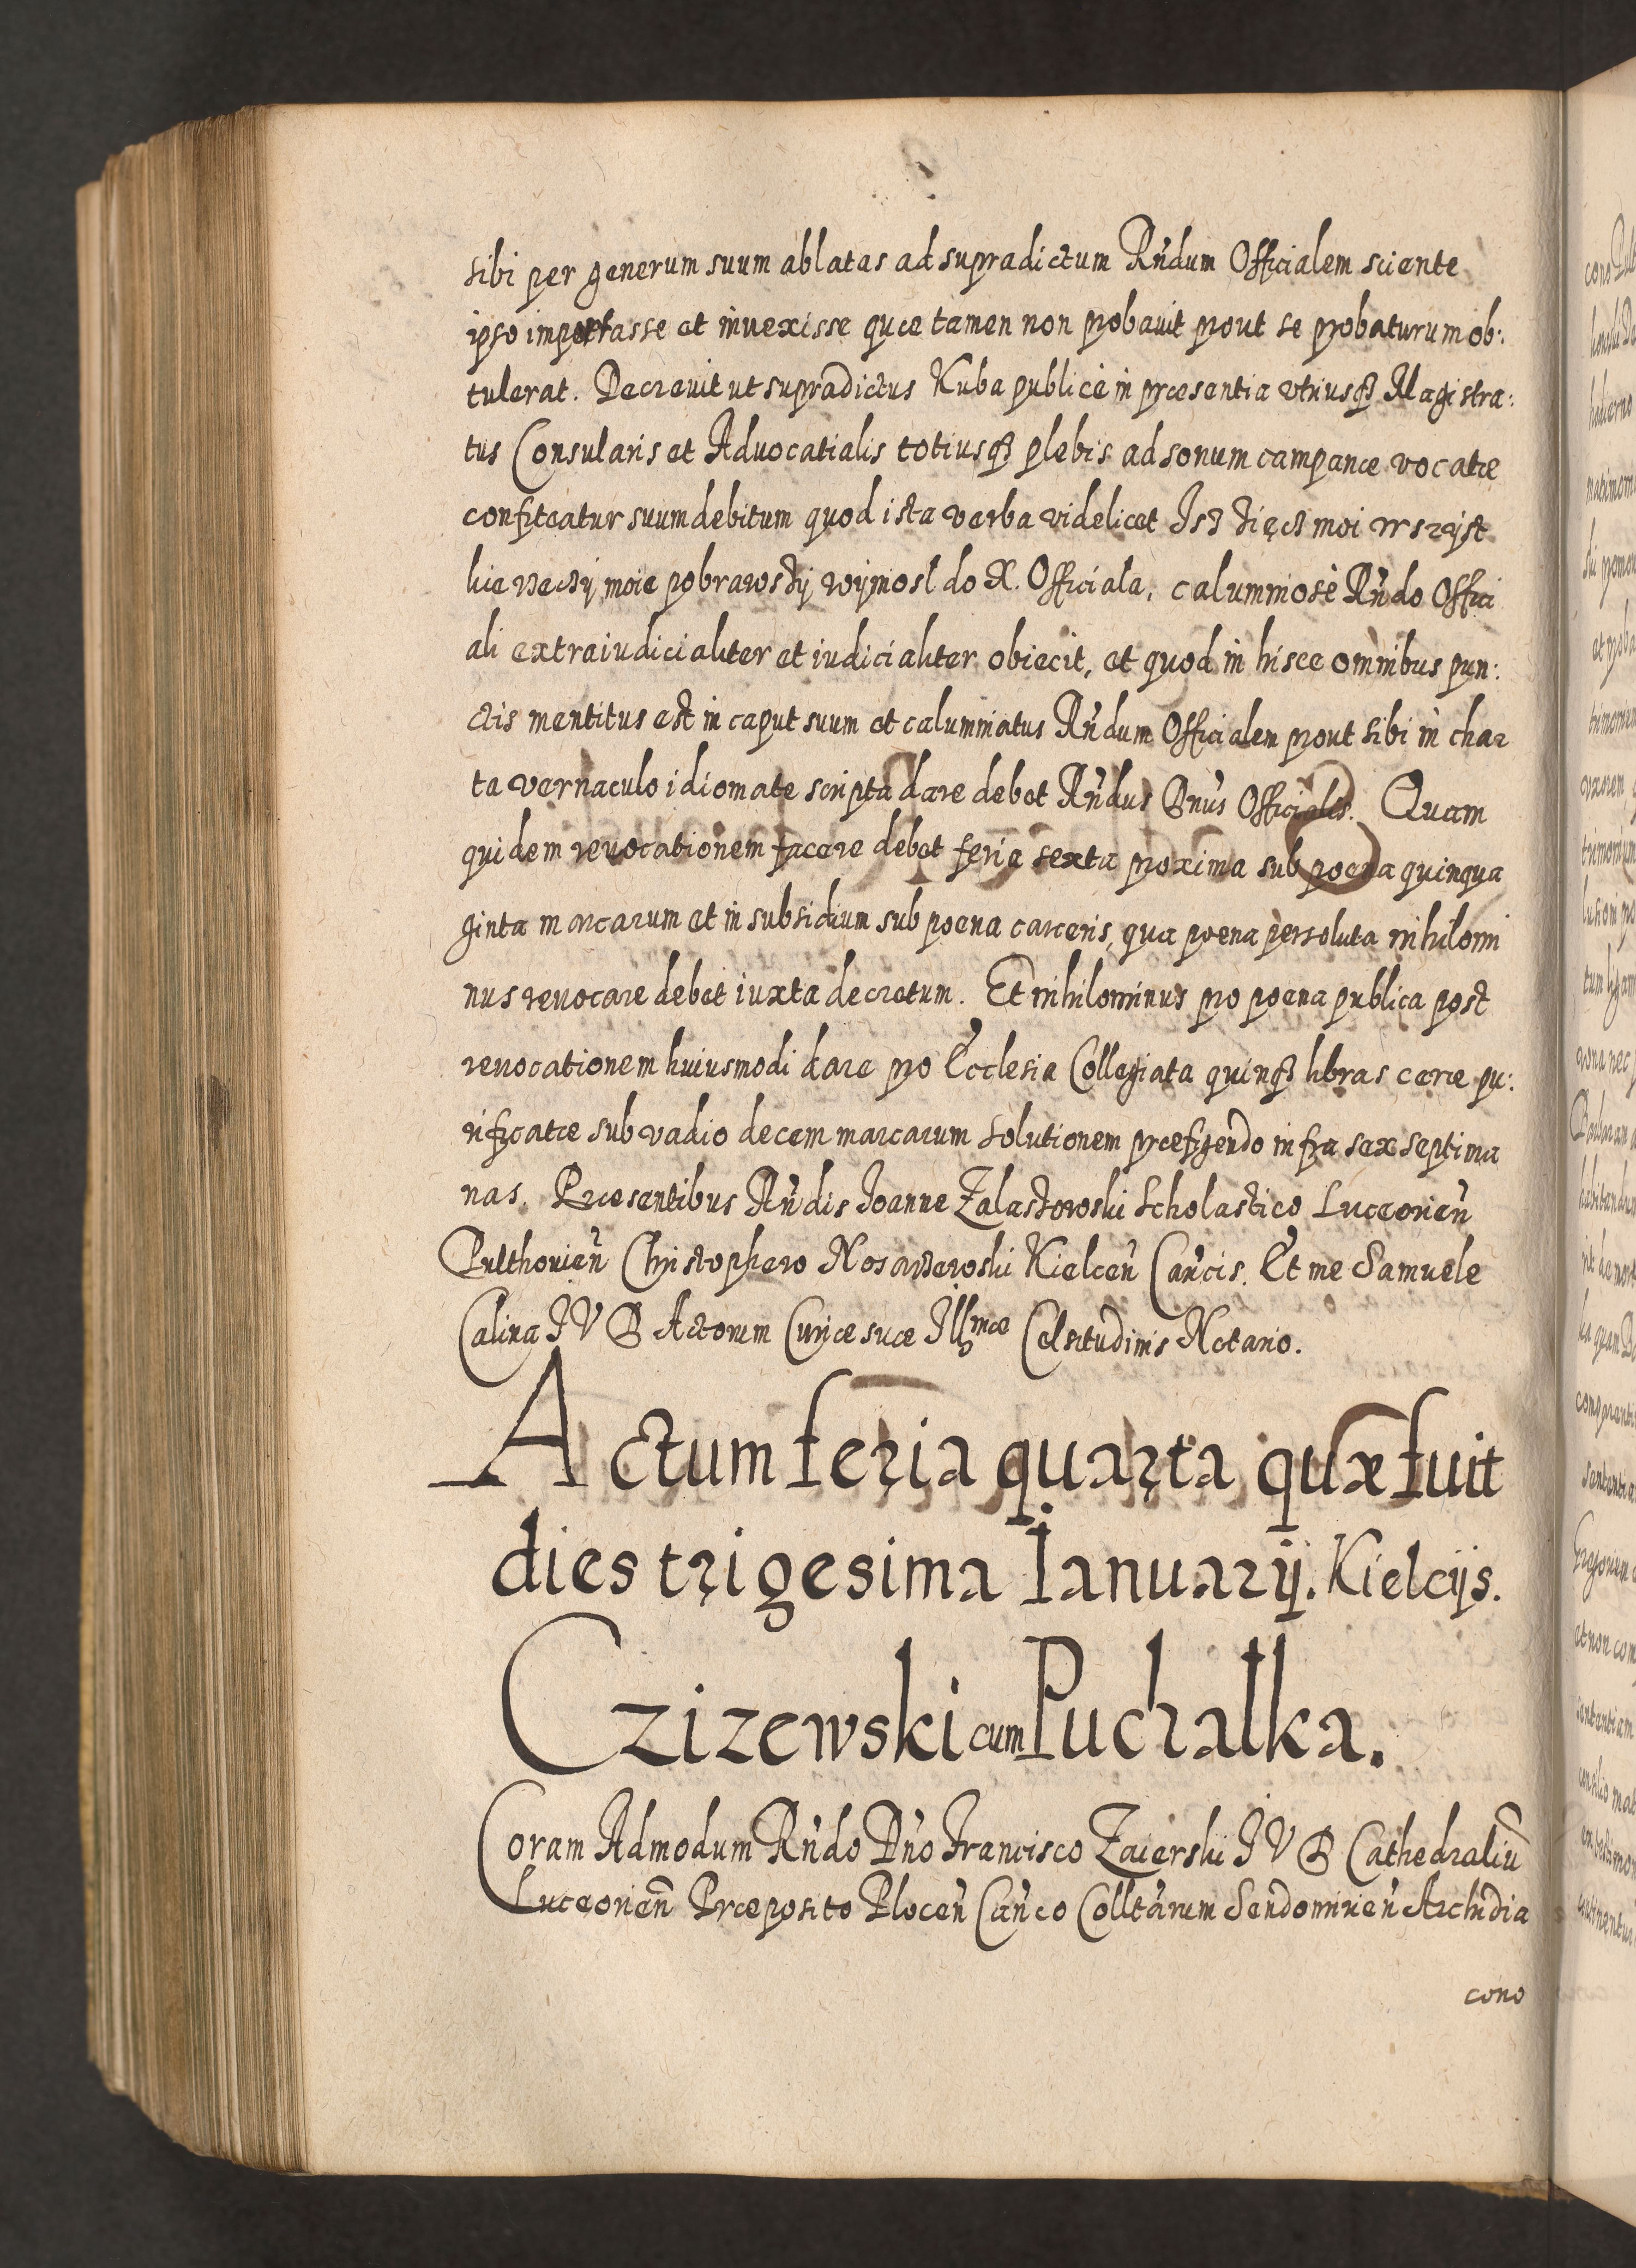 sibi per generum suum ablatas ad supradictum Rñdum Officialem sciente
ipso importasse et inuexisse quæ tamen non probauit prout se probaturum ob:
tulerat. Decreuit ut supradictus Kuba publicè in præsentia vtriusqȝ Magistra:
tus Consularis et Aduocatialis totiusqȝ plebis ad sonum campanæ vocatæ
confiteatur suum debitum quod ista verba videlicet Isz zięcz moi wszyst
kie rzeczÿ moie pobrawszÿ wÿniosl do X. Officiala, calumniosè Rñdo Offici
ali extraiudicialiter et iudicialiter obiecit, et quod in hisce omnibus pun:
ctis mentitus est in caput suum et calumniatus Rñdum Officialem prout sibi in char
ta vernaculo idiomate scripta dare debet Rñdus Dnūs Officialis. Quam
quidem reuocationem facere debet feria sexta proxima sub poena quinqua
ginta marcarum et in subsidium sub poena carceris, qua poena persoluta nihilomi
nus reuocare debet iuxta decretum. Et nihilominus pro poena publica post
reuocationem huiusmodi dare pro Ecclesia Collegiata quinqȝ libras ceræ pu:
rificatæ sub vadio decem marcarum solutionem præfigendo infra sex septima
nas. Præsentibus Rñdis Joanne Zalaszowski Scholastico Luceorien̄
Pulthouien̄ Christophero Nosarzewski Kielcen̄ Cañcis. Et me Samuele
Calina J V D Actorum Curiæ suæ Illmæ Celsitudinis Notario.
Actum feria quarta quæ fuit
dies trigesima Ianuarij. Kielcijs.
Czizewski cum Puchalka.
Coram Admodum Rñdo Dño Francisco Zaierski J V D Cathedraliū
Luceorien̄ Præposito Plocen̄ Cañco Colltārum Sendomirien̄ Archidia
cono